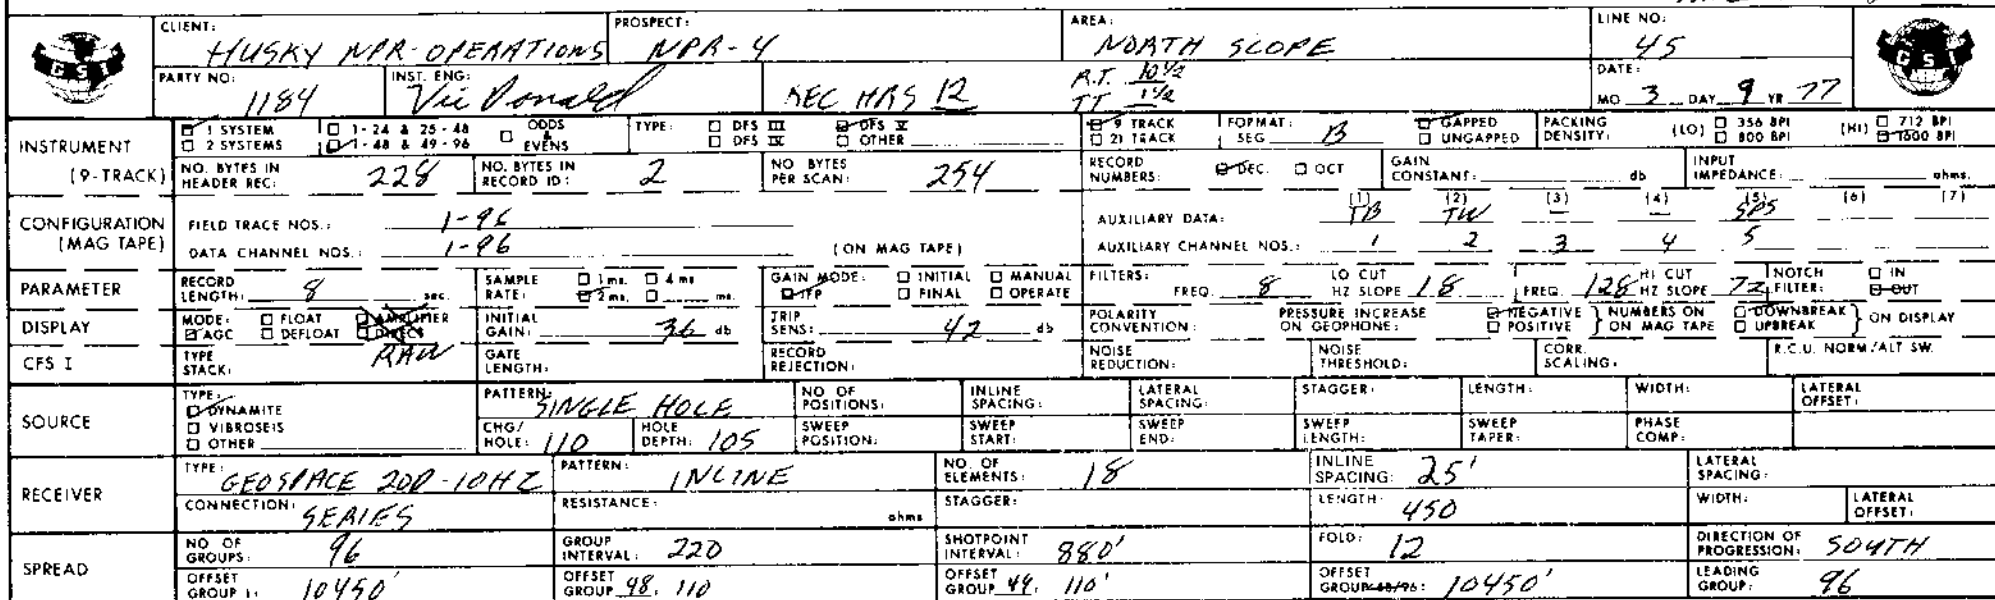 CLIENT: HUSKY NPR-OPERATIONS PROSPECT: NPR-4 AREA: NORTH SLOPE LINE NO: 45
GSI
PARTY NO: 1184 INST. ENG: Vic Donald REC HRS 12 R.T. 10 1/2 TT 1 1/2 DATE: MO 3 DAY 9 YR 77
GSI
INSTRUMENT (9-TRACK) ☑ 1 SYSTEM ☐ 1-24 & 25-48 ☐ ODDS & EVENS TYPE: ☐ DFS III ☑ DFS V ☑ 9 TRACK FORMAT: SEG B ☑ GAPPED PACKING DENSITY: (LO) ☐ 356 BPI (HI) ☐ 712 BPI
☐ 2 SYSTEMS ☑ 1-48 & 49-96 ☐ DFS IV ☐ OTHER ☐ 21 TRACK ☐ UNGAPPED ☐ 800 BPI ☑ 1600 BPI
NO. BYTES IN HEADER REC: 228 NO. BYTES IN RECORD ID: 2 NO BYTES PER SCAN: 254 RECORD NUMBERS: ☑ DEC. ☐ OCT GAIN CONSTANT: db INPUT IMPEDANCE: ohms.
CONFIGURATION (MAG TAPE) FIELD TRACE NOS.: 1-96 AUXILIARY DATA: (1) TB (2) TW (3) — (4) — (5) SPS (6) (7)
DATA CHANNEL NOS.: 1-96 (ON MAG TAPE) AUXILIARY CHANNEL NOS.: 1 2 3 4 5
PARAMETER RECORD LENGTH: 8 sec. SAMPLE RATE: ☐ 1 ms. ☐ 4 ms ☑ 2 ms. ☐ ms. GAIN MODE: ☐ INITIAL ☐ MANUAL ☑ IFP ☐ FINAL ☐ OPERATE FILTERS: FREQ. 8 LO CUT HZ SLOPE 18 FREQ. 128 HI CUT HZ SLOPE 72 NOTCH FILTER: ☐ IN ☑ OUT
DISPLAY MODE: ☐ FLOAT ☐ AMPLIFIER ☑ AGC ☐ DEFLOAT ☐ DIRECT RAW INITIAL GAIN: 36 db TRIP SENS: 42 db POLARITY CONVENTION: PRESSURE INCREASE ON GEOPHONE: ☑ NEGATIVE ☐ POSITIVE } NUMBERS ON ON MAG TAPE ☑ DOWNBREAK ☐ UPBREAK } ON DISPLAY
CFS I TYPE STACK: GATE LENGTH: RECORD REJECTION: NOISE REDUCTION: NOISE THRESHOLD: CORR. SCALING: R.C.U. NORM/ALT SW.
SOURCE TYPE: ☑ DYNAMITE ☐ VIBROSEIS ☐ OTHER PATTERN: SINGLE HOLE NO OF POSITIONS: INLINE SPACING: LATERAL SPACING: STAGGER: LENGTH: WIDTH: LATERAL OFFSET:
CHG/HOLE: 110 HOLE DEPTH: 105 SWEEP POSITION: SWEEP START: SWEEP END: SWEEP LENGTH: SWEEP TAPER: PHASE COMP:
RECEIVER TYPE: GEOSPACE 20D-10HZ PATTERN: INLINE NO. OF ELEMENTS: 18 INLINE SPACING: 25' LATERAL SPACING:
CONNECTION: SERIES RESISTANCE: ohms STAGGER: LENGTH: 450 WIDTH: LATERAL OFFSET:
SPREAD NO. OF GROUPS: 96 GROUP INTERVAL: 220 SHOTPOINT INTERVAL: 880' FOLD: 12 DIRECTION OF PROGRESSION: SOUTH
OFFSET GROUP 1: 10450' OFFSET GROUP 48: 110 OFFSET GROUP 49: 110' OFFSET GROUP 48/96: 10450' LEADING GROUP: 96